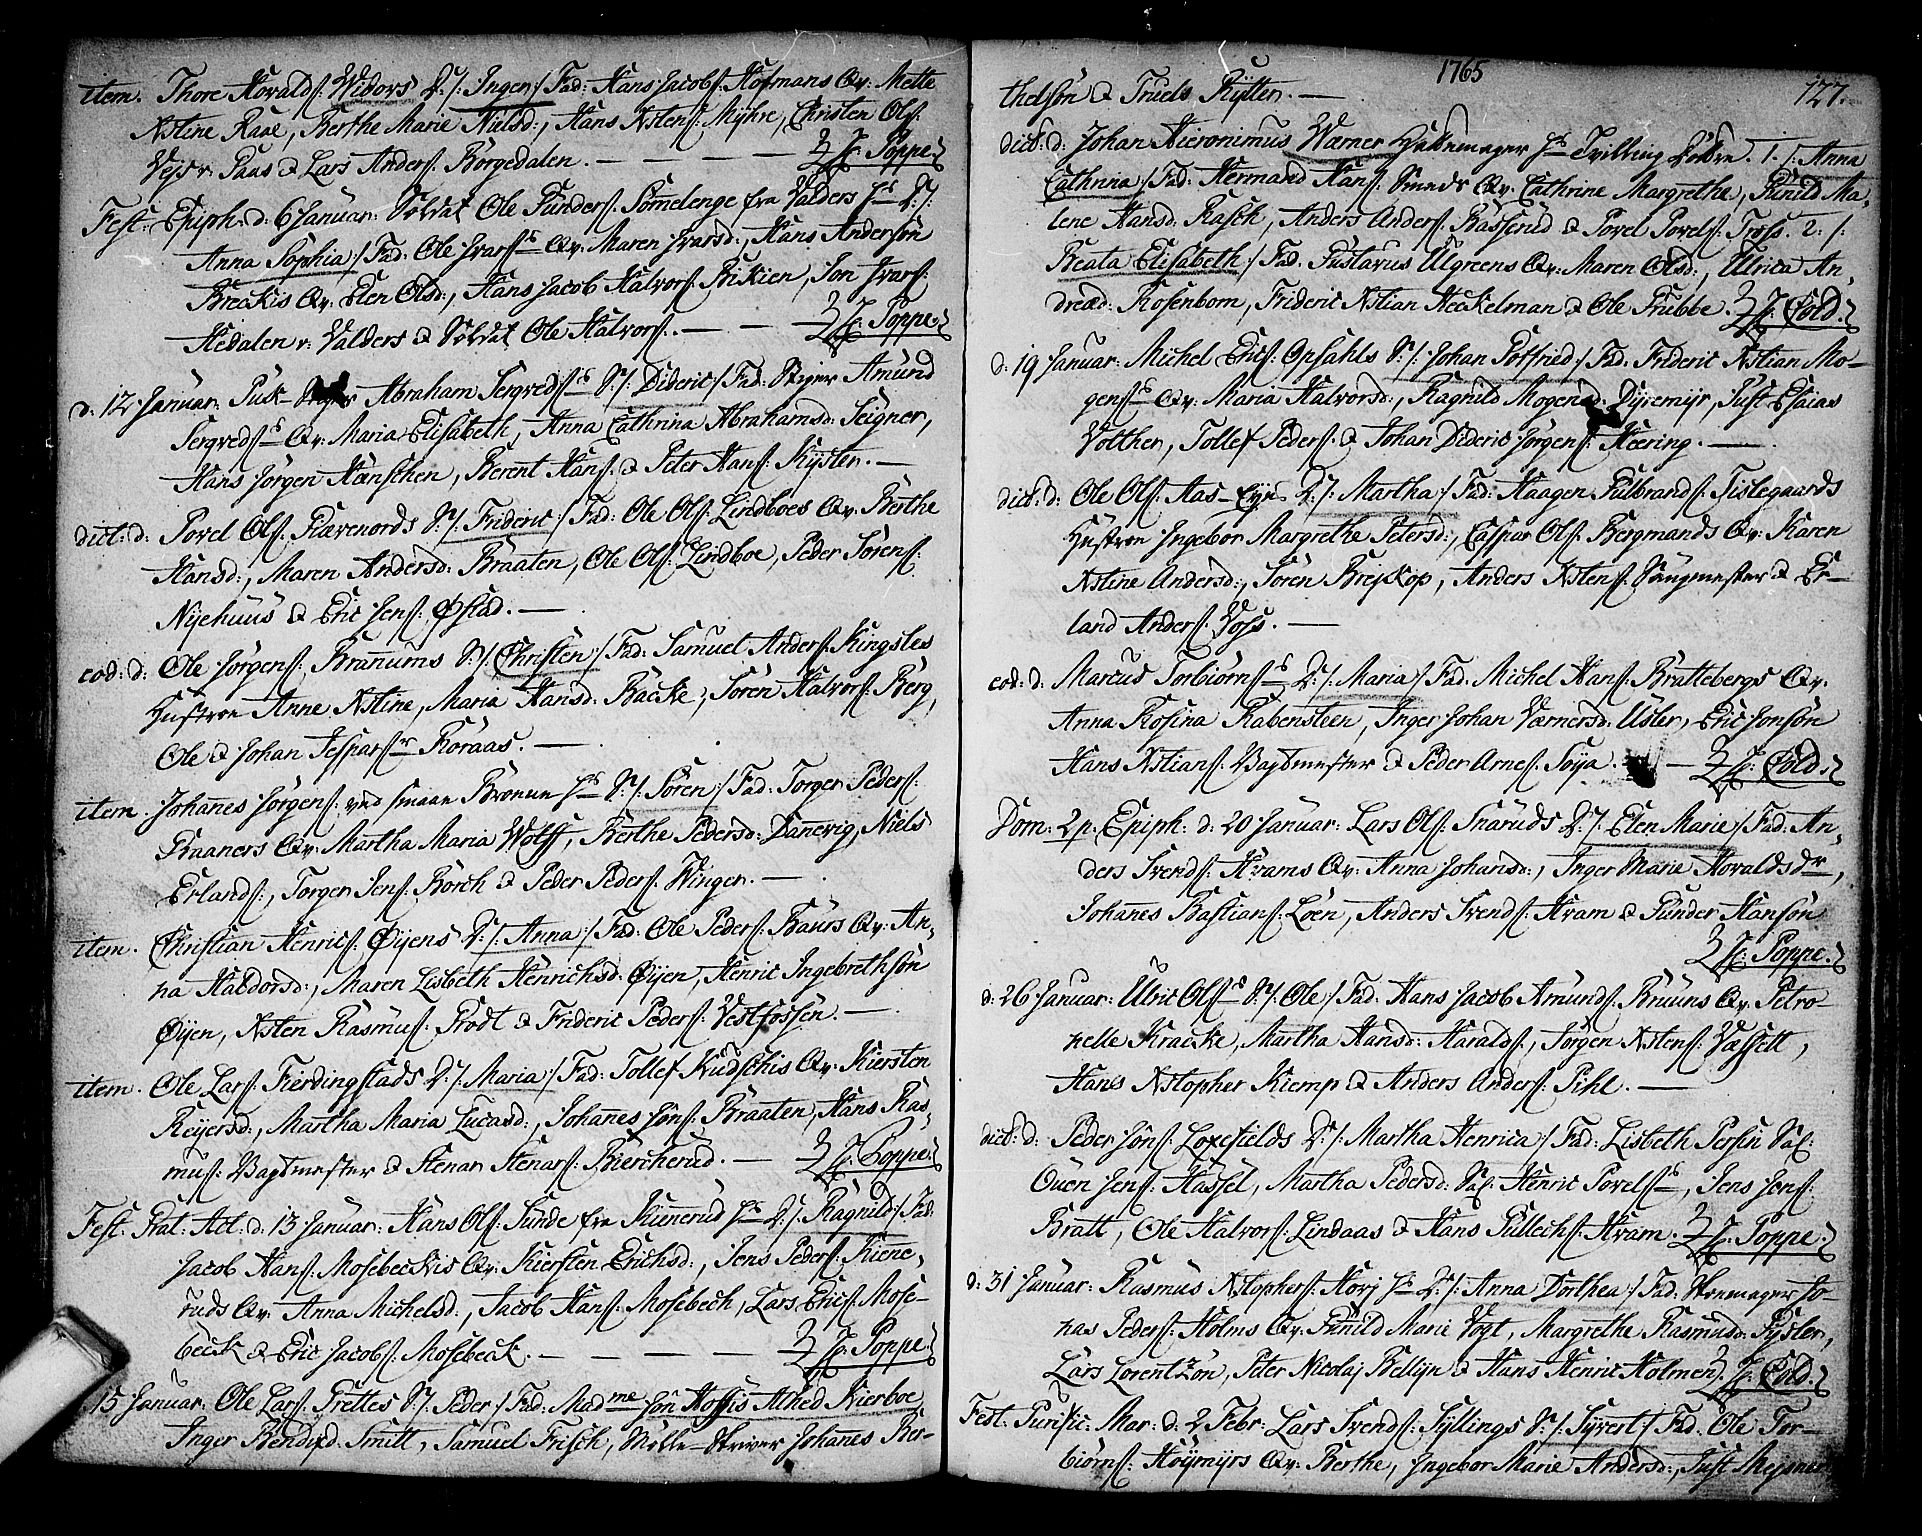 item. Thore Horalds: Widors D:/: Ingen /: Fad: Hans Jacobs: Hofmans Qv: Mette
Xstine Raae, Berthe Marie Nielsd:, Hans Xstens: Myhre, Christen Ols:
Paas & Lars Anders: Börgedalen. — — — — } H: Poppe.}
Fest: Epiph: d: 6 Januar: Soldat Ole Gunders: fra Valders Hs D:/:
Anna Sophia /: Fad: Ole Ivars: Qv: Maren Ivarsd:, Hans Andersön
Breckis Qv: Elen Olsd:, Hans Jacob Halvors: Bikien, Jon Ivars:
Hedalen v: Valders & Soldat Ole Halvors:. — — — } H: Poppe.}
d: 12 Januar: Abraham S:/: Dideric /: Fad: Stiger Amund
Qv: Maria Elisabeth, Anna Cathrina Abrahamsd: Seigner,
Hans Jörgen Hænschen, Berent Hans: & Peter Hans: Kyster. —
dict: d: Povel Ols: Plævenords S:/: Frideric /: Fad: Ole Ols: Lindboes Qv: Berthe
Hansd:, Maren Andersd: Braaten, Ole Ols: Lindboe, Peder Sörens:
Nyehuus & Eric Jens: Östad. —
eod: d: Ole Jörgens: Branums S:/: Christen /: Fad: Samuel Anders: Kingsles
Hustroe Anne Xstine, Maria Hansd: Backe, Sören Halvors: Berg,
Ole & Johan Jespars: Roraas. —
item. Johannes Jörgens: ved smaae Broene Hs S:/: Sören /: Fad: Torger Peders:
Braaners Qv: Martha Maria Wolff, Berthe Pedersd: Dannevig, Niels
Erlands:, Torger Jens: Borch & Peder Peders: Winger. —
item. Christian Henrics: Öyens D:/: Anna /: Fad: Ole Peders: Baurs Qv: An=
na Haldorsd:, Maren Lisbeth Henrichsd: Öyen, Henric Ingebrethsön
Öyen, Xsten Rasmus: Brodt & Frideric Peders: Vestfossen. —
item. Ole Lars: Fierdingstads D:/: Maria /: Fad: Tollef Kudschis Qv: Kiersten
Reyersd:, Martha Maria Lucasd:, Johanes Jöns: Braaten, Hans Ras=
mus: Vagtmester & Stenar Stenars: Biercherud. — } H: Poppe.}
Fest: Nat: Act: d: 13 Januar: Hans Ols: Sunde fra Kienerud Hs D:/: Ragnild /: Fad:
Jacob Hans: Mosebeckis Qv: Kiersten Erichsd:, Jens Peders: Kiene=
ruds Qv: Anna Michelsd:, Jacob Hans: Mosebech, Lars Erics: Mose=
beck & Eric Jacobs: Mosebeck. — — — — } H: Poppe.}
15 Januar: Ole Lars: Grettes S:/: Peder /: Fad: Madme Jön Alhed Kierboe,
Inger Bendixd: Smitt, Samuel Frisch, Mölle-Skriver Johanes Ber=
1765
127.
thelsön & Truels Rytter. —
dict: d: Johan Hieronimus Warner Hs Tvilling Dötre. 1. /: Anna
Cathrina /: Fad: Hermand Hans: Smeds Qv: Cathrine Margrethe, Gunild Ma=
lene Hansd: Rasch, Anders Anders: Basserud & Povel Povels: Tross. 2. /:
Beata Elisabeth /: Fad: Gustavus Ulgreens Qv: Maren Olsd:, Ulrica An=
dread: Rosenborn, Frideric Xstian Heckelman & Ole Grubbe. } H: Cold.}
d: 19 Januar: Michel Erics: Opsahls S:/: Johan Gotfried /: Fad: Frideric Xstian Mo=
gens: Qv: Maria Halvorsd:, Ragnild Mogensd: Dyremyr, Just Esaias
Volther, Tollef Peders: & Johan Dideric Jörgens: Heering. —
dict: d: Ole Ols: Aas-Eyes D:/: Martha /: Fad: Haagen Gulbrands: Tislegaards
Hustroe Ingebor Margrethe Petersd:, Caspar Ols: Bergmands Qv: Karen
Xstine Andersd:, Sören Breyskop, Anders Xstens: Sangmester & Er=
land Anders: Voss. —
eod: d: Marcus Torbiörns: D:/: Maria /: Fad: Michel Hans: Brattebergs Qv:
Anna Rosina Rabensteen, Inger Johan Værnersd: Usler, Eric Jonsön
Hans Xstians: Vagtmester & Peder Arnes: Töya. — } H: Cold.}
Dom: 2 p. Epiph: d: 20 Januar: Lars Ols: Snaruds D:/: Elen Marie /: Fad: An=
ders Svends: Hrams Qv: Anna Johansd:, Inger Maria Horaldsdr,
Johannes Bastians: Loen, Anders Svends: Hram & Gunder Hansön
} H: Poppe.}
d: 26 Januar: Ulric Ols: S:/: Ole /: Fad: Hans Jacob Amunds: Bruuns Qv: Petro=
nelle Kracke, Martha Hansd: Haralds:, Jörgen Xstens: Vassett,
Hans Xstopher Kiemp & Anders Anders: Pihl. —
dict: d: Peder Jöns: Loxefields D:/: Martha Henrica /: Fad: Lisbeth Persen Sal:
Ouen Jens: Hassel, Martha Pedersd: Sal: Henric Povels:, Jens Jens:
Bratt, Ole Halvors: Lindaas & Hans Gullichs: Hram. } H: Poppe.}
d: 31 Januar: Rasmus Xstophers: Horj Hs D:/: Anna Dorthea /: Fad: Skoemager Jo=
nas Peders: Holms Qv: Gunild Marie Vogt, Margrethe Rasmusd: Gysler,
Lars Lorentzön, Peter Nicolaj Bellyn & Hans Henric Holmen. } H: Cold.}
Fest: Purific: Mar: d: 2 Febr: Lars Svends: Syllings S:/: Syvert /: Fad: Ole Tor=
biörns: Höymyrs Qv: Berthe, Ingebor Marie Andersd:, Just Meysner